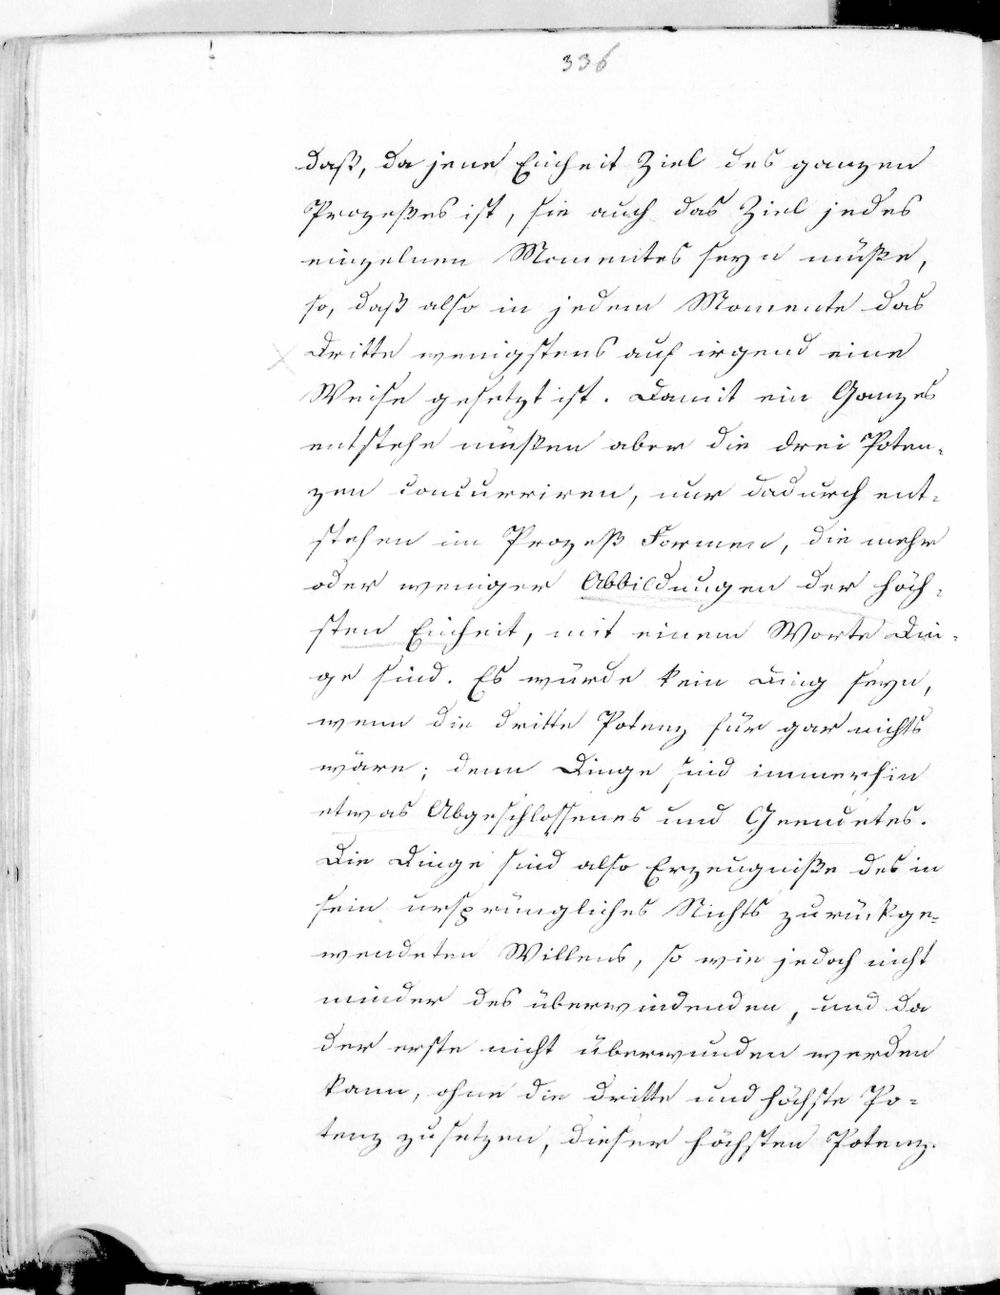 336
daß, da jene Einheit Ziel des ganzen
Prozeßes ist, sie auch das Ziel jedes
einzelnen Momentes seyn müße,
so, daß also in jedem Momente das
Dritte wenigstens auf irgend eine
Weise gesetzt ist. Damit ein Ganzes
entstehe müßen aber die drei Poten-
zen concurriren, nur dadurch ent-
stehen im Prozeß Formen, die mehr
oder weniger Abbildungen der höch-
sten Einheit, mit einem Worte Din-
ge sind. Es würde kein Ding seyn,
wenn die dritte Potenz für gar nichts
wäre; denn Dinge sind immerhin
etwas Abgeschlossenes und Geendetes.
Die Dinge sind also Erzeugniße des in
sein ursprüngliches Nichts zurückge-
wendeten Willens, so wie jedoch nicht
minder des überwindenden, und da
der erste nicht überwunden werden
kann, ohne die dritte und höchste Po-
tenz zu setzen, dieser höchsten Potenz.